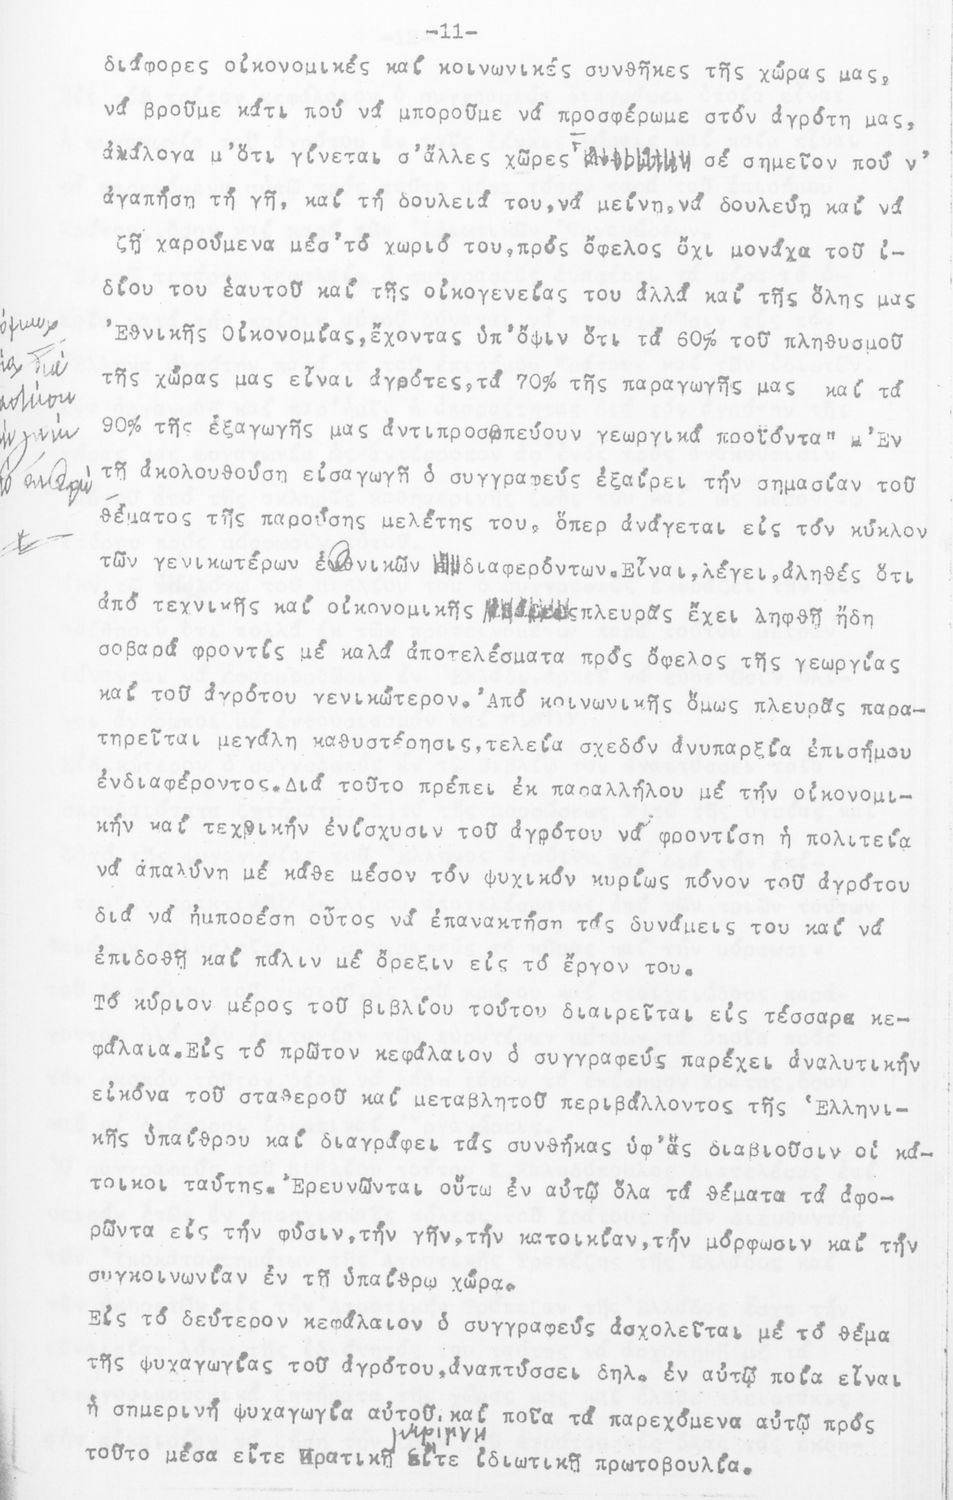 -11-
διάφορες οἰκονομικές καί κοινωνικές συνθῆκες τῆς χώρας μας,
νά βροῦμε κάτι πού νά μποροῦμε νά προσφέρωμε στόν ἀγρότη μας,
ἀνάλογα μ'ὅτι γίνεται σ'ἄλλες χῶρες σέ σημεῖον πού ν'
ἀγαπήση τή γῆ, καί τή δουλειά του,νά μείνη,νά δουλεύη καί νά
ζῆ χαρούμενα μέσ'τό χωριό του,πρός ὄφελος ὄχι μονάχα τοῦ ἰ-
δίου του ἑαυτοῦ καί τῆς οἰκογενείας του ἀλλά καί τῆς ὅλης μας
Ἐθνικῆς Οἰκονομίας,ἔχοντας ὑπ'ὄψιν ὅτι τά 60% τοῦ πληθυσμοῦ
τῆς χώρας μας εἶναι ἀγρότες,τά 70% τῆς παραγωγῆς μας καί τά
90% τῆς ἐξαγωγῆς μας ἀντιπροσωπεύουν γεωργικά προϊόντα" . Ἐν
τῆ ἀκολουθούση εἰσαγωγῆ ὁ συγγραφεύς ἐξαίρει τήν σημασίαν τοῦ
θέματος τῆς παρούσης μελέτης του, ὅπερ ἀνάγεται εἰς τόν κύκλον
τῶν γενικωτέρων ἐθνικῶν διαφερόντων.Εἶναι,λέγει,ἀληθές ὅτι
ἀπό τεχνικῆς καί οἰκονομικῆς πλευρᾶς ἔχει ληφθῆ ἤδη
σοβαρά φροντίς μέ καλά ἀποτελέσματα πρός ὄφελος τῆς γεωργίας
καί τοῦ ἀγρότου γενικώτερον. Ἀπό κοινωνικῆς ὅμως πλευρᾶς παρα-
τηρεῖται μεγάλη καθυστέρησις,τελεία σχεδόν ἀνυπαρξία ἐπισήμου
ἐνδιαφέροντος.Διά τοῦτο πρέπει ἐκ παραλλήλου μέ τήν οἰκονομι-
κήν καί τεχνικήν ἐνίσχυσιν τοῦ ἀγρότου νά φροντίση ἡ πολιτεία
νά ἀπαλύνη μέ κάθε μέσον τόν ψυχικόν κυρίως πόνον τοῦ ἀγρότου
διά νά ἠμπορέση οὗτος νά ἐπανακτήση τάς δυνάμεις του καί νά
ἐπιδοθῆ καί πάλιν μέ ὄρεξιν εἰς τό ἔργον του.
Τό κύριον μέρος τοῦ βιβλίου τούτου διαιρεῖται εἰς τέσσαρα κε-
φάλαια.Εἰς τό πρῶτον κεφάλαιον ὁ συγγραφεύς παρέχει ἀναλυτικήν
εἰκόνα τοῦ σταθεροῦ καί μεταβλητοῦ περιβάλλοντος τῆς Ἑλληνι-
κῆς ὑπαίθρου καί διαγράφει τάς συνθήκας ὑφ'ἅς διαβιοῦσιν οἱ κά-
τοικοι ταύτης. Ἐρευνῶνται οὕτω ἐν αὐτῷ ὅλα τά θέματα τά ἀφο-
ρῶντα εἰς τήν φύσιν,τήν γῆν,τήν κατοικίαν,τήν μόρφωσιν καί τήν
συγκοινωνίαν ἐν τῆ ὑπαίθρω χώρα.
Εἰς τό δεύτερον κεφάλαιον ὁ συγγραφεύς ἀσχολεῖται μέ τό θέμα
τῆς ψυχαγωγίας τοῦ ἀγρότου,ἀναπτύσσει δηλ. ἐν αὐτῷ ποία εἶναι
ἡ σημερινή ψυχαγωγία αὐτοῦ, καί ποῖα τά παρεχόμενα αὐτῷ πρός
τοῦτο μέσα εἴτε Κρατικῆ εἴτε ἰδιωτικῆ πρωτοβουλία.